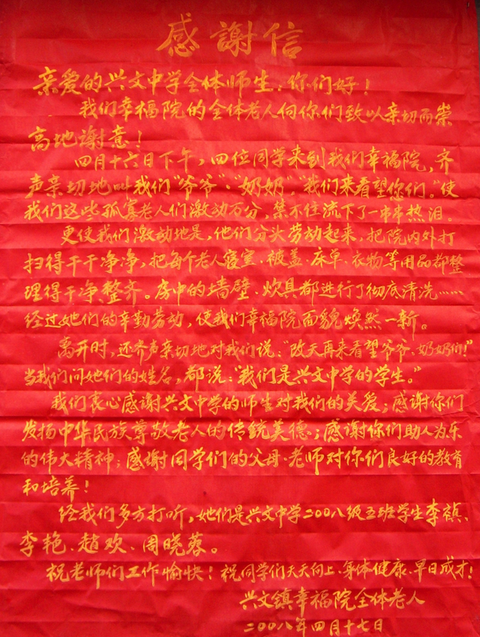 感謝信
亲爱的兴文中学全体师生，你们好！
我们幸福院的全体老人向你们致以亲切而崇
高地谢意！
四月十六日下午，四位同学来到我们幸福院，齐
声亲切地叫我们“爷爷”、“奶奶”，“我们来看望你们”。使
我们这些孤寡老人们激动万分，禁不住流下了一串串热泪。
更使我们激动地是，他们分头劳动起来，把院内外打
扫得干干净净，把每个老人寝室、被盖、床单、衣物等用品都整
理得干净整齐。房中的墙壁、炊具都进行了彻底清洗……
经过她们的辛勤劳动，使我们幸福院面貌焕然一新。
离开时，还齐声亲切地对我们说：“改天再来看望爷爷、奶奶们！”
当我们问她们的姓名，都说：“我们是兴文中学的学生。”
我们衷心感谢兴文中学的师生对我们的关爱；感谢你们
发扬中华民族尊敬老人的传统美德；感谢你们助人为乐
的伟大精神；感谢同学们的父母、老师对你们良好的教育
和培养！
经我们多方打听，她们是兴文中学二00八级五班学生李祯、
李艳、赵欢、周晓蓉。
祝老师们工作愉快！祝同学们天天向上、身体健康、早日成才！
兴文鎮幸福院全体老人
二00八年四月十七日